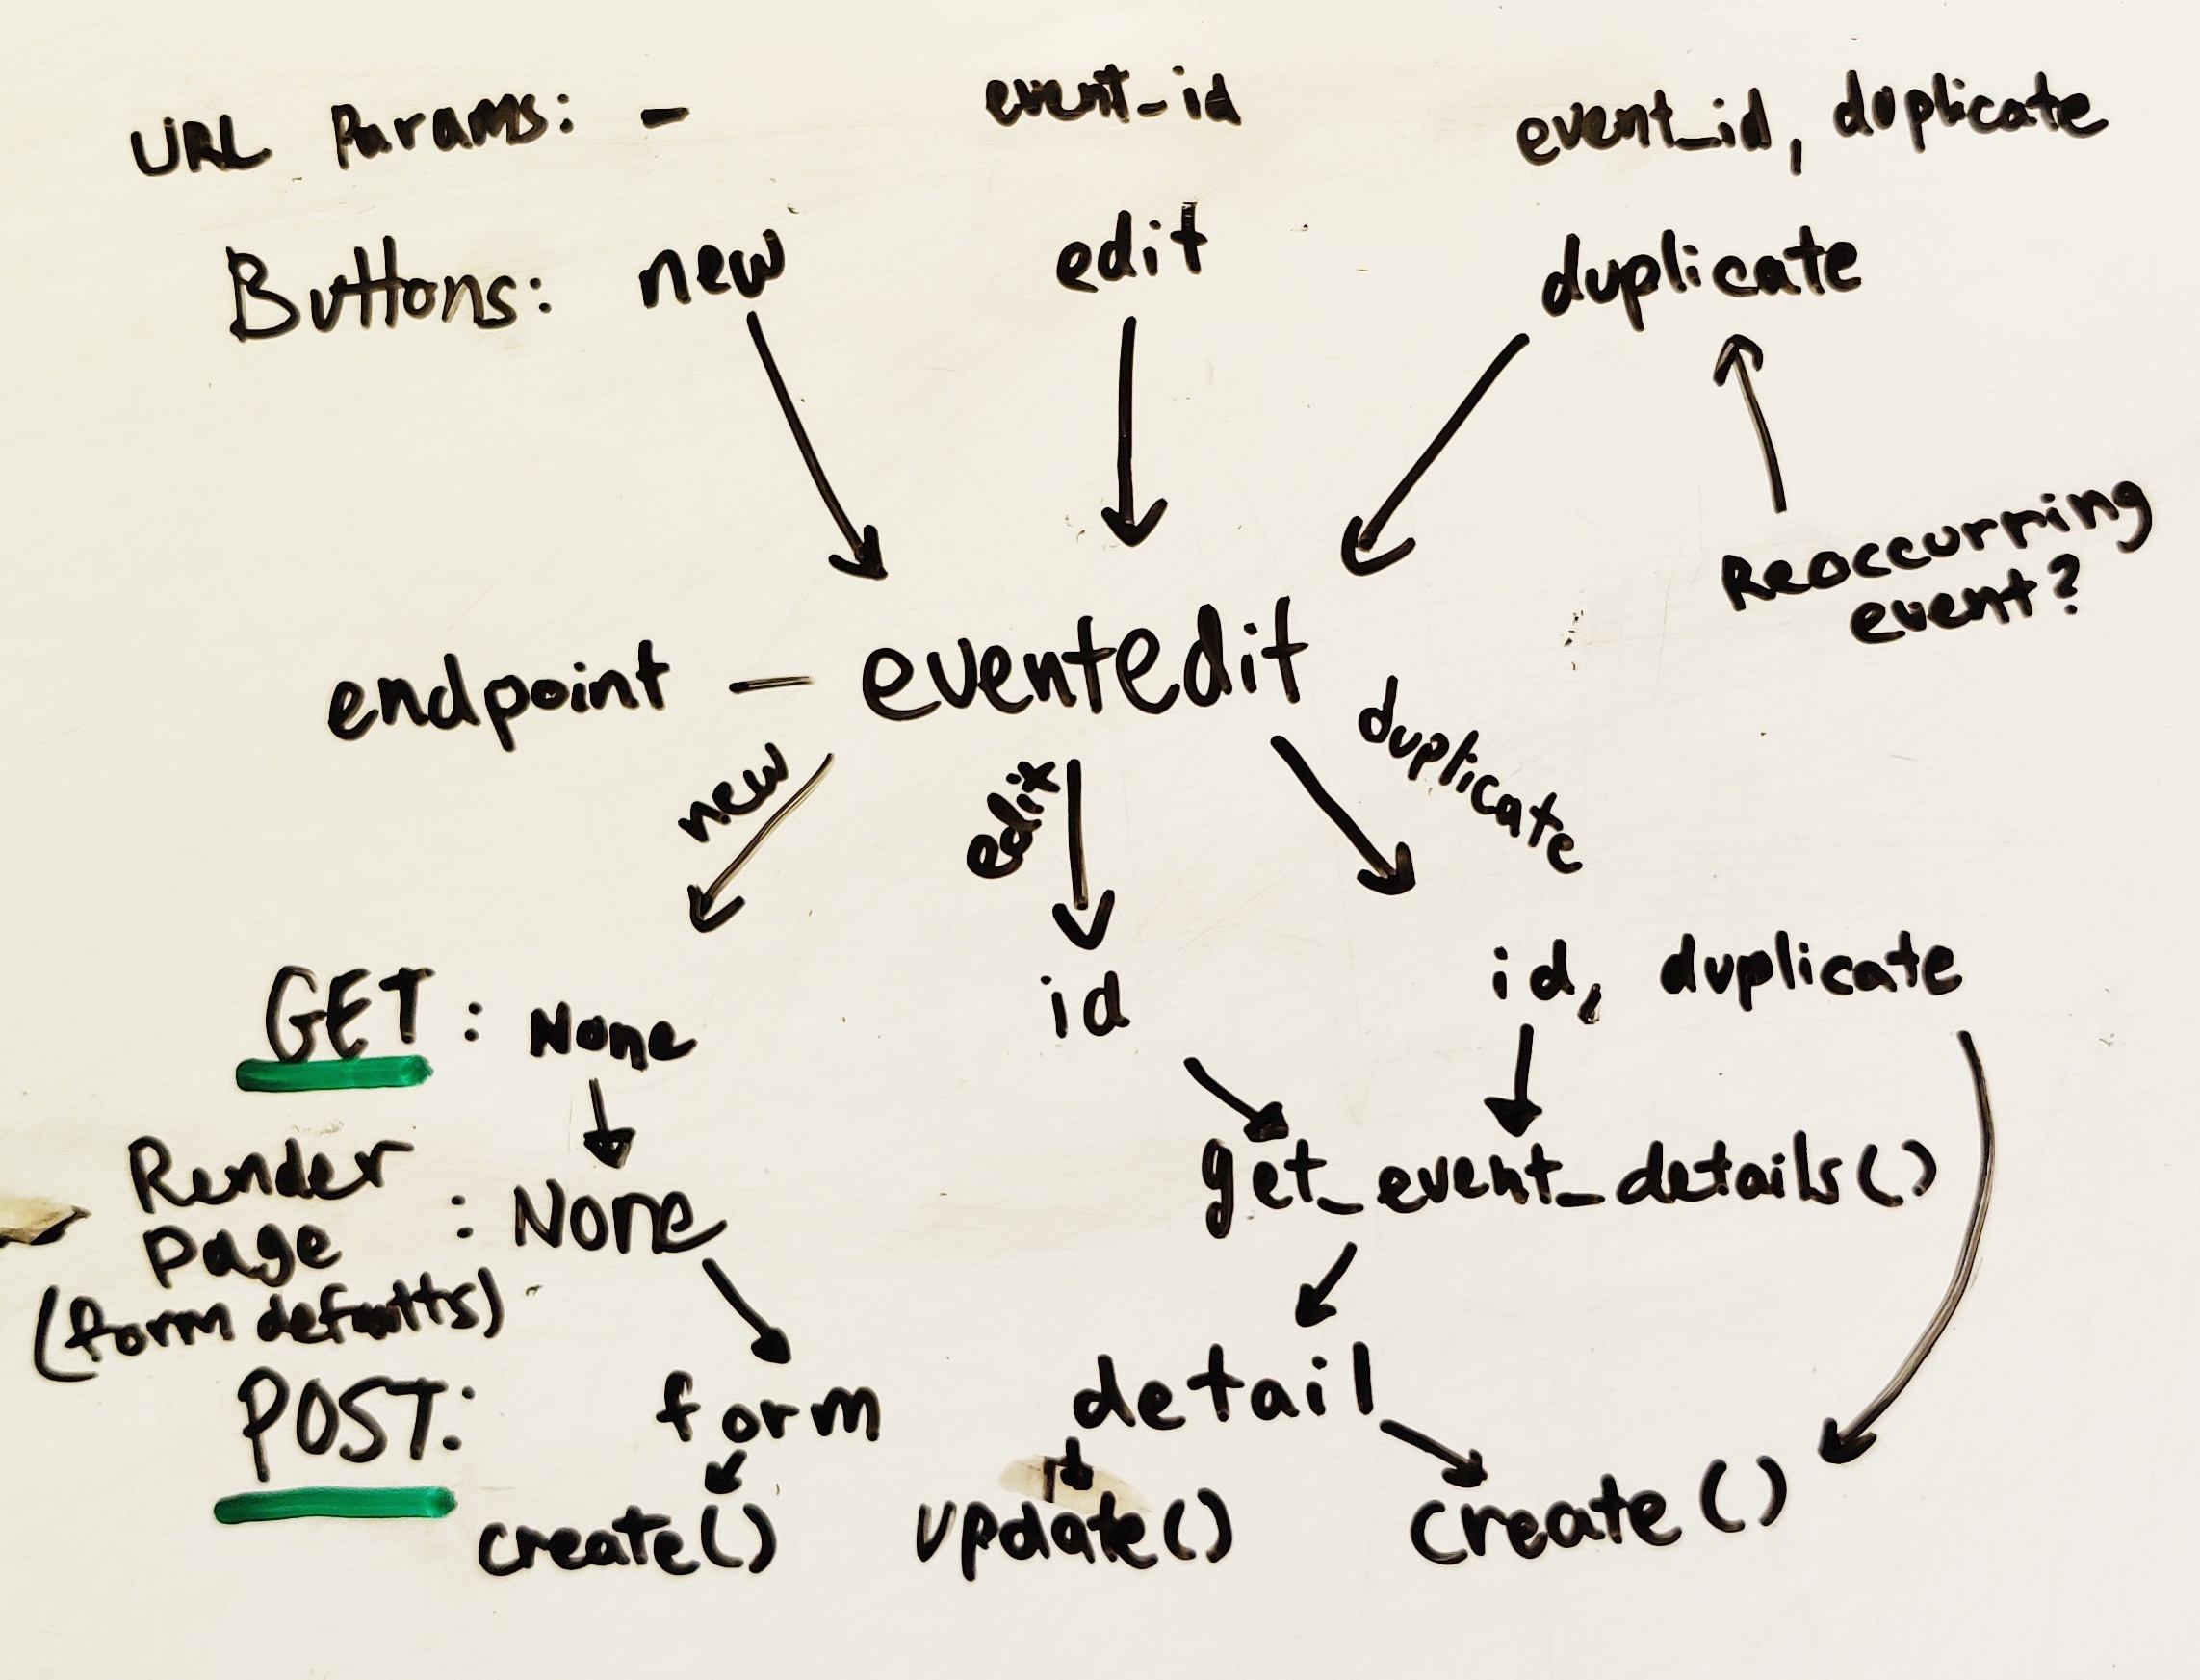 URL Params: - event_id event_id, duplicate
Buttons: new edit duplicate
Reoccurring
event?
endpoint — eventedit
new edit duplicate
GET: None id id, duplicate
Render
Page : None get_event_details()
(form defaults)
POST: form detail
create() update() create()